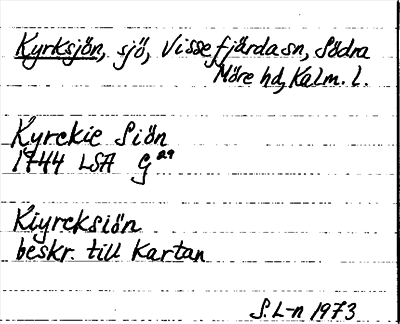 Kyrksjön, sjö, Vissefjärda sn, Södra
Möre hd, Kalm. l.
Kyrckie Siön
1744 LSA G 29
Kiyrcksiön
beskr. till kartan
S. L-n 1973